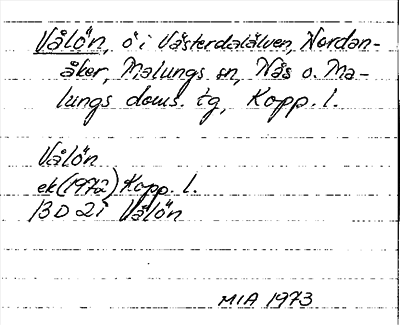 Vålön, ö i Västerdalälven, Nordan-
åker, Malungs sn, Nås o. Ma-
lungs doms. tg, Kopp. l.
Vålön
ek (1972) Kopp. l.
13D 2i Vålön
MIA 1973